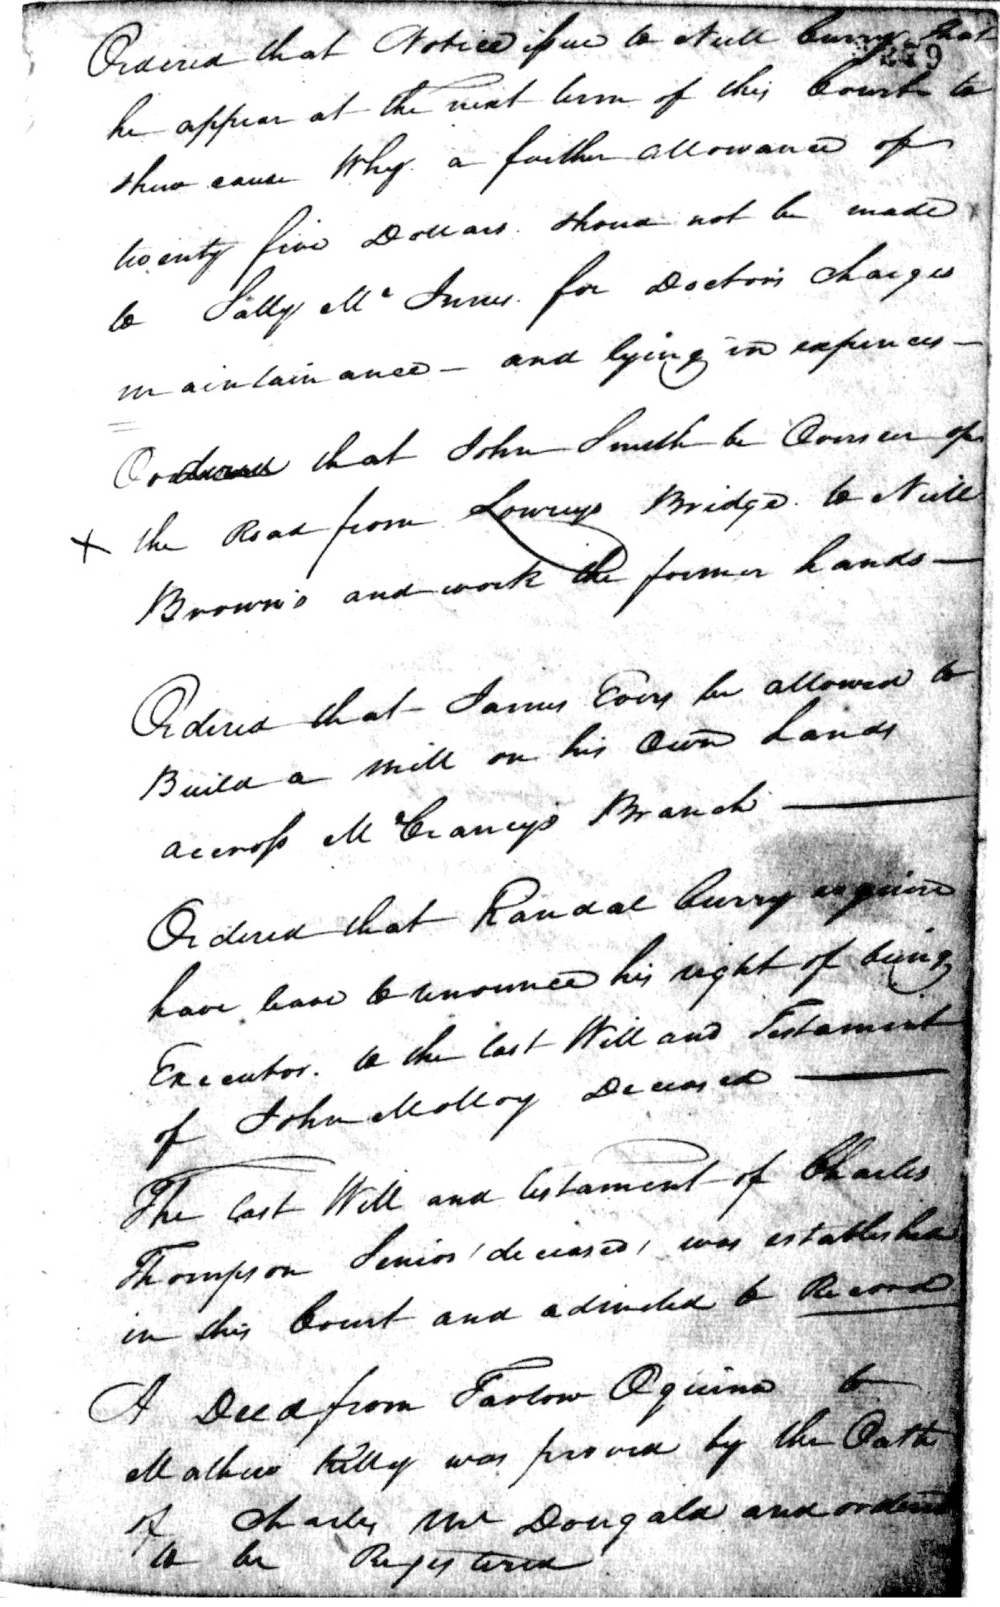 Ordered that Notice issue to Neill Curry that
259
he appear at the next term of this Court to
shew cause Why a further allowance of
twenty five Dollars should not be made
to Sally Mc Innis for Doctors charges
maintainance - and lying in expences -
Ordered that John Smith be Overseer of
X the Road from Lowreys Bridge to Neill
Brown's and work the former hands -
Ordered that James Ivey be allowed to
Build a mill on his Own Lands
across Mc Craneys Branch
Ordered that Randal Curry esquire
have leave to renounce his right of being
Executor to the last Will and Testament
of John McMoy Deceased
The last Will and testament of Charles
Thompson Senior (deceased) was established
in this Court and admited to Record
A Deed from Tarlow Oquinn to
Mathew Killy was proved by the Oath
of Charles Mc Dougald and ordered
to be Registered